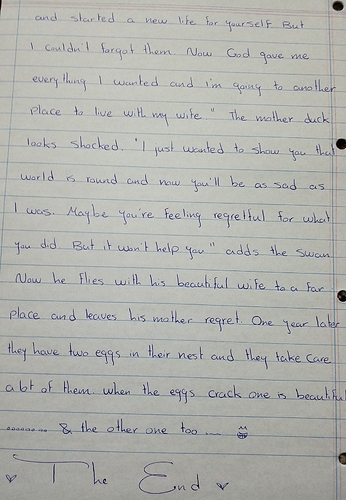 and started a new life for yourself But
I couldn't forgot them. Now God gave me
everything I wanted and i'm going to another
place to live with my wife " The mother duck
looks shocked. "I just wanted to show you that
world is round and now you'll be as sad as
I was. Maybe you're feeling regretful for what
you did. But it won't help you" adds the swan
Now he flies with his beautiful wife to a far
place and leaves his mother regret. One year later
they have two eggs in their nest and they take care
a lot of them. when the eggs crack one is beautiful
......... & the other one too ....
The End